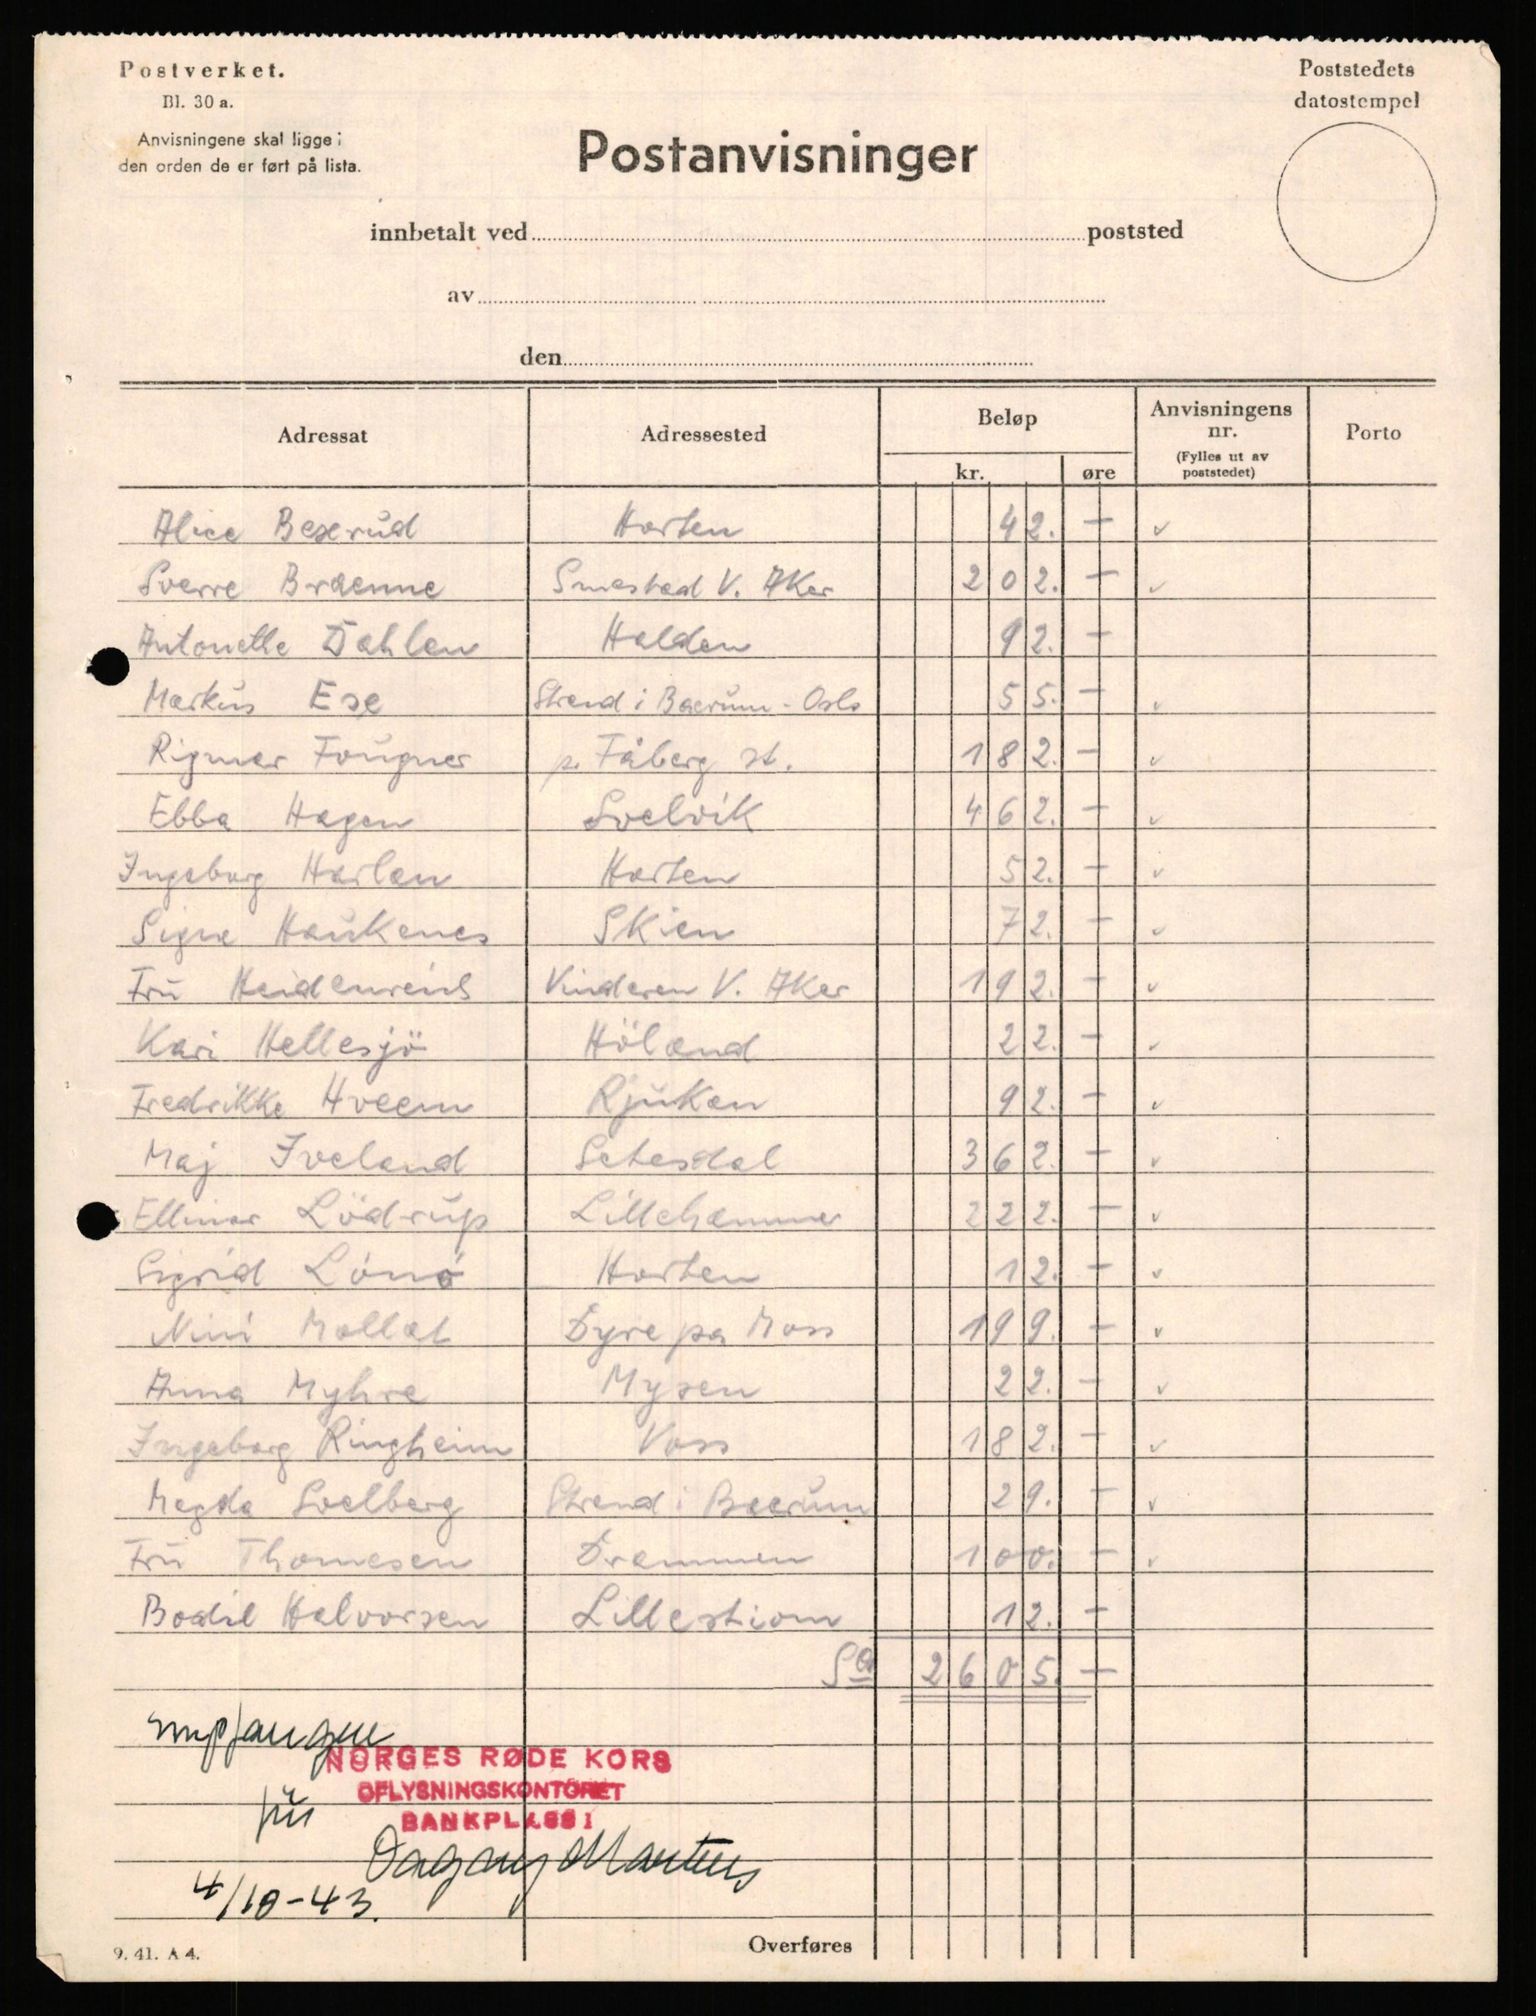 Postverket.
Bl. 30 a.
Anvisningene skal ligge i
den orden de er ført på lista.
Poststedets
datostempel
Postanvisninger
innbetalt ved poststed
av
den
Adressat Adressested Beløp kr. øre Anvisningens nr. (Fylles ut av poststedet) Porto
Alice Bexrud Horten 42. —
Sverre Braenne Smestad V. Aker 202. —
Antonette Dahlen Halden 92. —
Markus Ese Strand i Baerum - Oslo 55. —
Rigmor Fougner p. Fåberg st. 182. —
Ebba Hagen Svelvik 462. —
Ingeborg Harlem Horten 52. —
Signe Haukenes Skien 72. —
Fru Heidenreich Vinderen V. Aker 192. —
Kari Hellesjö Höland 22. —
Fredrikke Hveem Rjukan 92. —
Maj Iveland Setesdal 362. —
Ellinor Lödrup Lillehammer 222. —
Sigrid Lönö Horten 12. —
Nini Mollat Dyre pa Moss 199. —
Anna Myhre Mysen 22. —
Ingeborg Ringheim Voss 182. —
Magda Solberg Strand i Baerum 29. —
Fru Thomesen Drammen 100. —
Bodil Halvorsen Lillestrom 12. —
Sa 2605. —
empfangen
NORGES RØDE KORS
OPLYSNINGSKONTORET
BANKPLASS 1
für
Dagny Martens
4/10-43.
9. 41. A 4.
Overføres